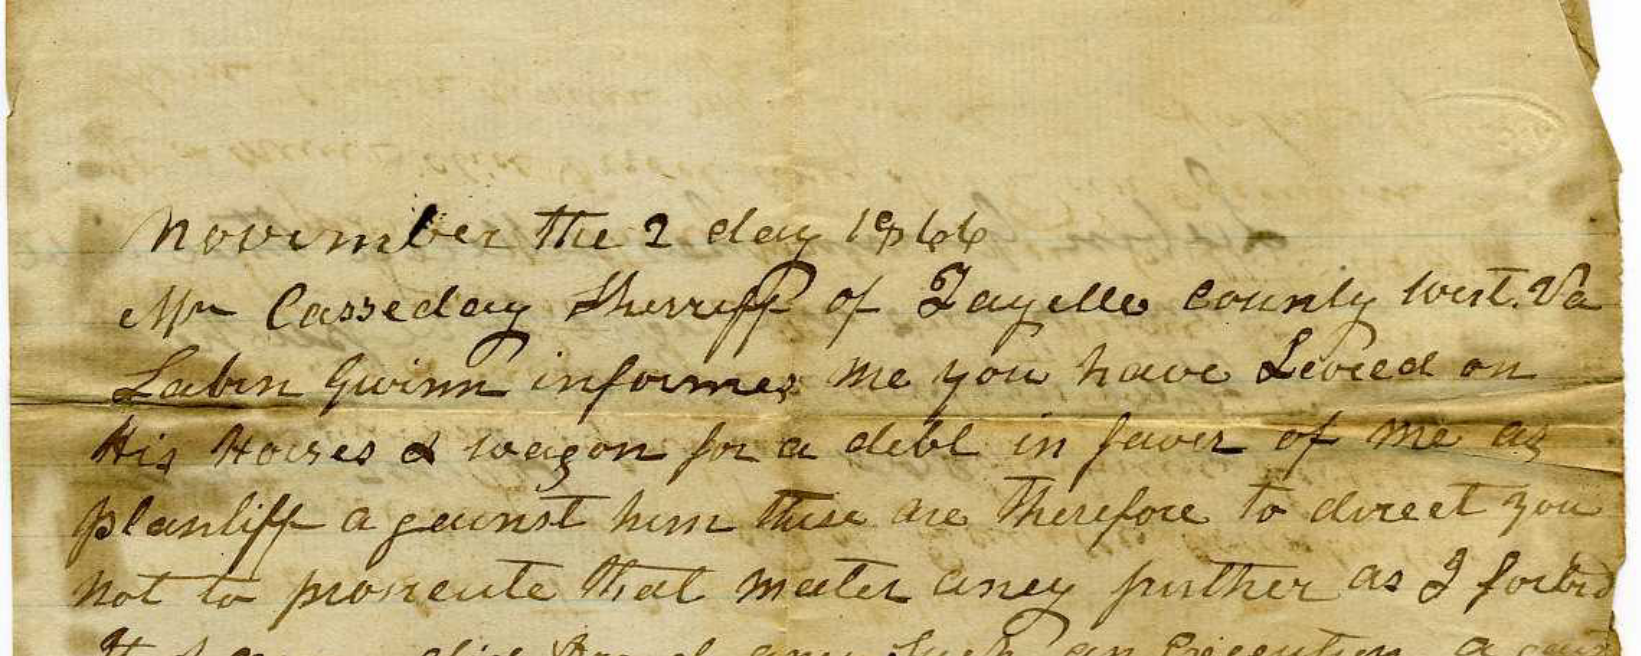 November the 2 day 1866
Mr Casseday Sherriff of Fayette County West. Va
Labin Gwinn informes me you have Leveed on
His Horses & wagon for a debt in faver of me as
plantiff a gainst him these are Therefore to direct you
not to prosecute that mater aney further as I forbid
It I never did Order any Such an Execution a gainst